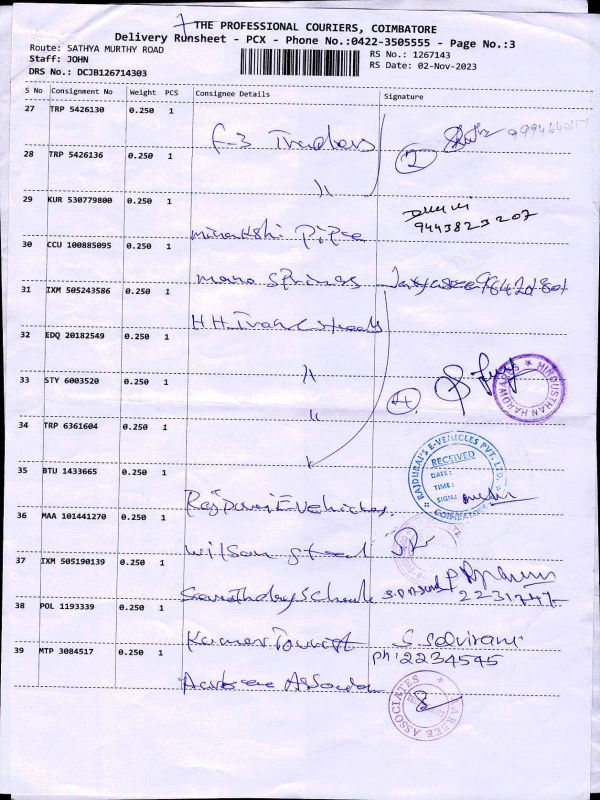 THE PROFESSIONAL COURIERS, COIMBATORE
Delivery Runsheet - PCX - Phone No.:0422-3505555 - Page No.:3
Route: SATHYA MURTHY ROAD
RS No.: 1267143
Staff: JOHN
RS Date: 02-Nov-2023
DRS No.: DCJB126714303
S No Consignment No Weight PCS Consignee Details Signature
27 TRP 5426130 0.250 1
F-3 Traders 2
28 TRP 5426136 0.250 1
"
29 KUR 530779800 0.250 1
9443823207
Minakshi Pipe
30 CCU 100885095 0.250 1
mano Springs
31 IXM 505243586 0.250 1
H.H. Iron & Steels
32 EDQ 20182549 0.250 1
"
33 STY 6003520 0.250 1
HINDUSTHAN HARDWARES
" 4.
34 TRP 6361604 0.250 1
35 BTU 1433665 0.250 1
RAJDURAI'S E-VEHICLES PVT. LTD.
RECEIVED
DATE:
TIME:
SIGN:
COIMBATORE
Rajdurai E Vehicles
36 MAA 101441270 0.250 1
Wilson Steel
37 IXM 505190139 0.250 1
2231747
38 POL 1193339 0.250 1
S. Selvirani
ph: 2234545
39 MTP 3084517 0.250 1
ASSOCIATES